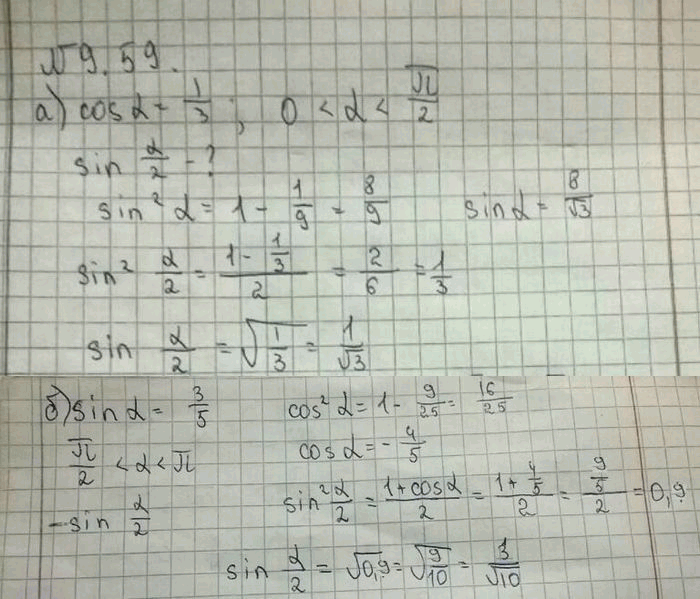 № 9.59.
а) cos α = 1/3 ; 0 < α < π/2
sin α/2 - ?
sin² α = 1 - 1/9 = 8/9 sin α = 8/√3
sin² α/2 = (1 - 1/3)/2 = 2/6 = 1/3
sin α/2 = √(1/3) = 1/√3
б) sin α = 3/5 cos² α = 1 - 9/25 = 16/25
π/2 < α < π cos α = - 4/5
- sin α/2 sin² α/2 = (1 + cos α)/2 = (1 + 4/5)/2 = (9/5)/2 = 0,9
sin α/2 = √0,9 = √(9/10) = 3/√10